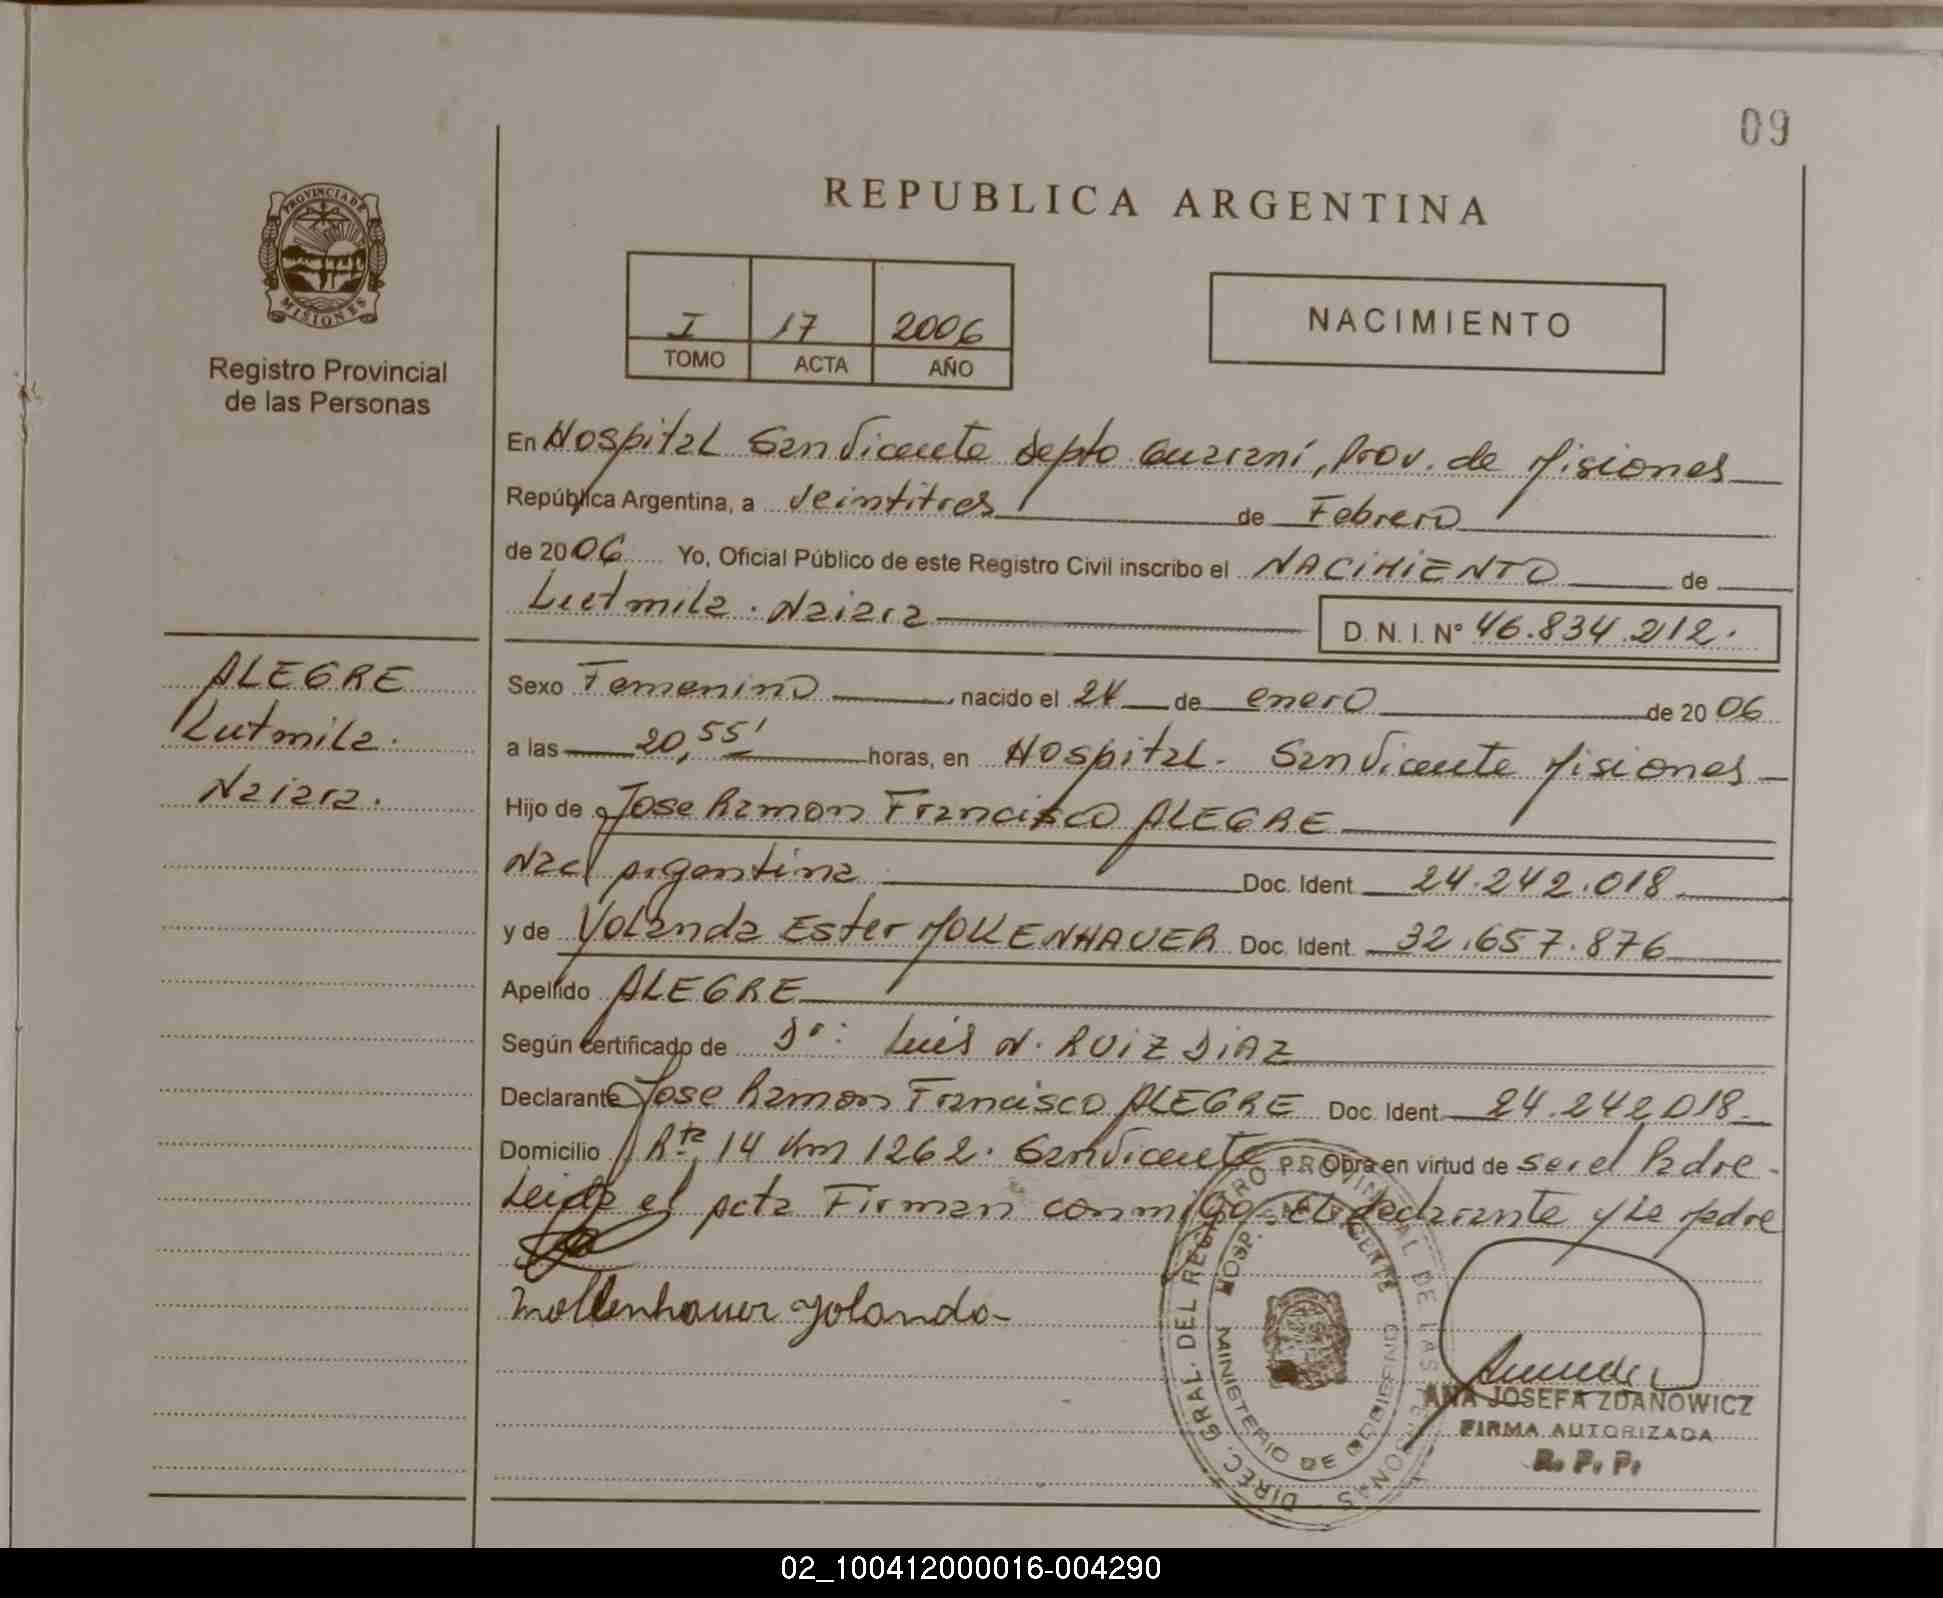 09
REPUBLICA ARGENTINA
PROVINCIA DE
MISIONES
Registro Provincial
de las Personas
I 17 2006
TOMO ACTA AÑO
NACIMIENTO
En Hospital San Vicente Depto Guarani, Prov. de Misiones
República Argentina, a Veintitres de Febrero
de 2006 Yo, Oficial Público de este Registro Civil inscribo el NACIMIENTO de
Lutmila. Naiara
D. N. I. Nº 46.834.212.
ALEGRE
Lutmila.
Naiara.
Sexo Femenino, nacido el 24 de enero de 2006
a las 20,55' horas, en Hospital. San Vicente Misiones
Hijo de Jose Ramon Francisco ALEGRE
Nac Argentina Doc. Ident. 24.242.018
y de Yolanda Ester MOLLENHAUER Doc. Ident. 32.657.876
Apellido ALEGRE
Según certificado de Dr: Luis N. RUIZ DIAZ
Declarante Jose Ramon Francisco ALEGRE Doc. Ident. 24.242.018
Domicilio Rta 14 Km 1262. San Vicente Obra en virtud de ser el Padre.
Leida el acta Firman conmigo El declarante y La Madre
Mollenhauer Yolanda
DIREC. GRAL. DEL REGISTRO PROVINCIAL DE LAS PERSONAS
HOSP. SAN VICENTE
MINISTERIO DE GOBIERNO
ANA JOSEFA ZDANOWICZ
FIRMA AUTORIZADA
R. P. P.
02_100412000016-004290